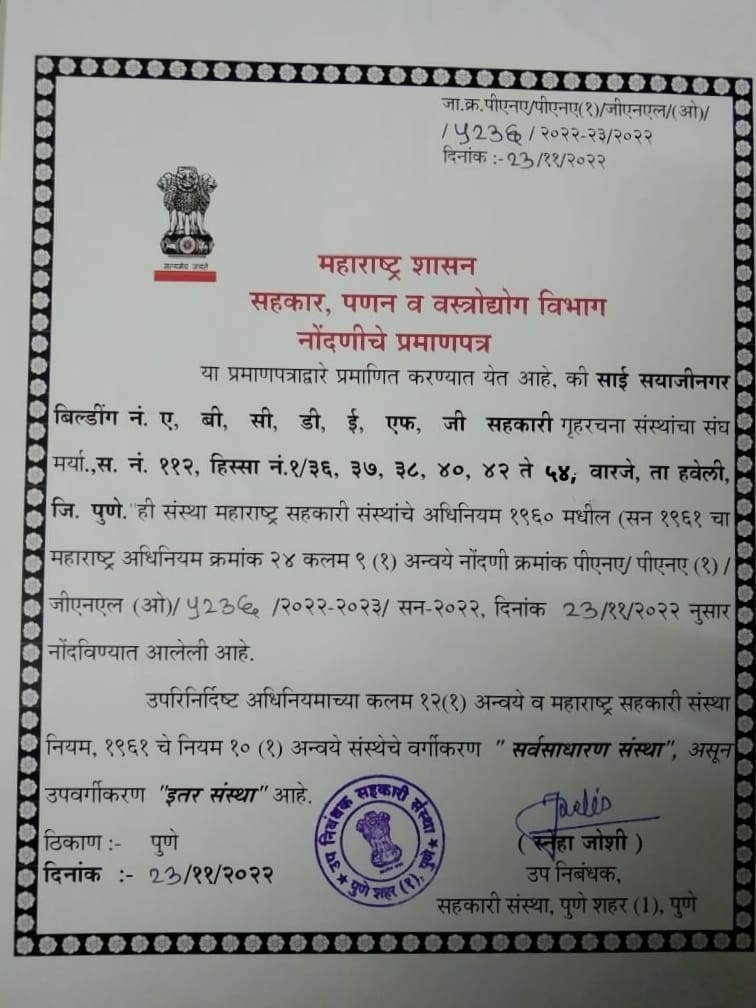 जा.क्र.पीएनए/पीएनए(१)/जीएनएल/(ओ)/
/ ५२३६ / २०२२-२३/२०२२
दिनांक :- २३/११/२०२२
सत्यमेव जयते
महाराष्ट्र शासन
सहकार, पणन व वस्त्रोद्योग विभाग
नोंदणीचे प्रमाणपत्र
या प्रमाणपत्राद्वारे प्रमाणित करण्यात येत आहे, की साई सयाजीनगर
बिल्डींग नं. ए, बी, सी, डी, ई, एफ, जी सहकारी गृहरचना संस्थांचा संघ
मर्या.,स. नं. ११२, हिस्सा नं.१/३६, ३७, ३८, ४०, ४२ ते ५४, वारजे, ता हवेली,
जि. पुणे." ही संस्था महाराष्ट्र सहकारी संस्थांचे अधिनियम १९६० मधील (सन १९६१ चा
महाराष्ट्र अधिनियम क्रमांक २४ कलम ९ (१) अन्वये नोंदणी क्रमांक पीएनए/ पीएनए (१) /
जीएनएल (ओ)/ ५२३६ /२०२२-२०२३/ सन-२०२२, दिनांक २३/११/२०२२ नुसार
नोंदविण्यात आलेली आहे.
उपरिनिर्दिष्ट अधिनियमाच्या कलम १२(१) अन्वये व महाराष्ट्र सहकारी संस्था
नियम, १९६१ चे नियम १० (१) अन्वये संस्थेचे वर्गीकरण " सर्वसाधारण संस्था", असून
उपवर्गीकरण "इतर संस्था" आहे.
ठिकाण :- पुणे
दिनांक :- २३/११/२०२२
उप निबंधक सहकारी संस्था
पुणे शहर (१), पुणे
( स्नेहा जोशी )
उप निबंधक,
सहकारी संस्था, पुणे शहर (1), पुणे